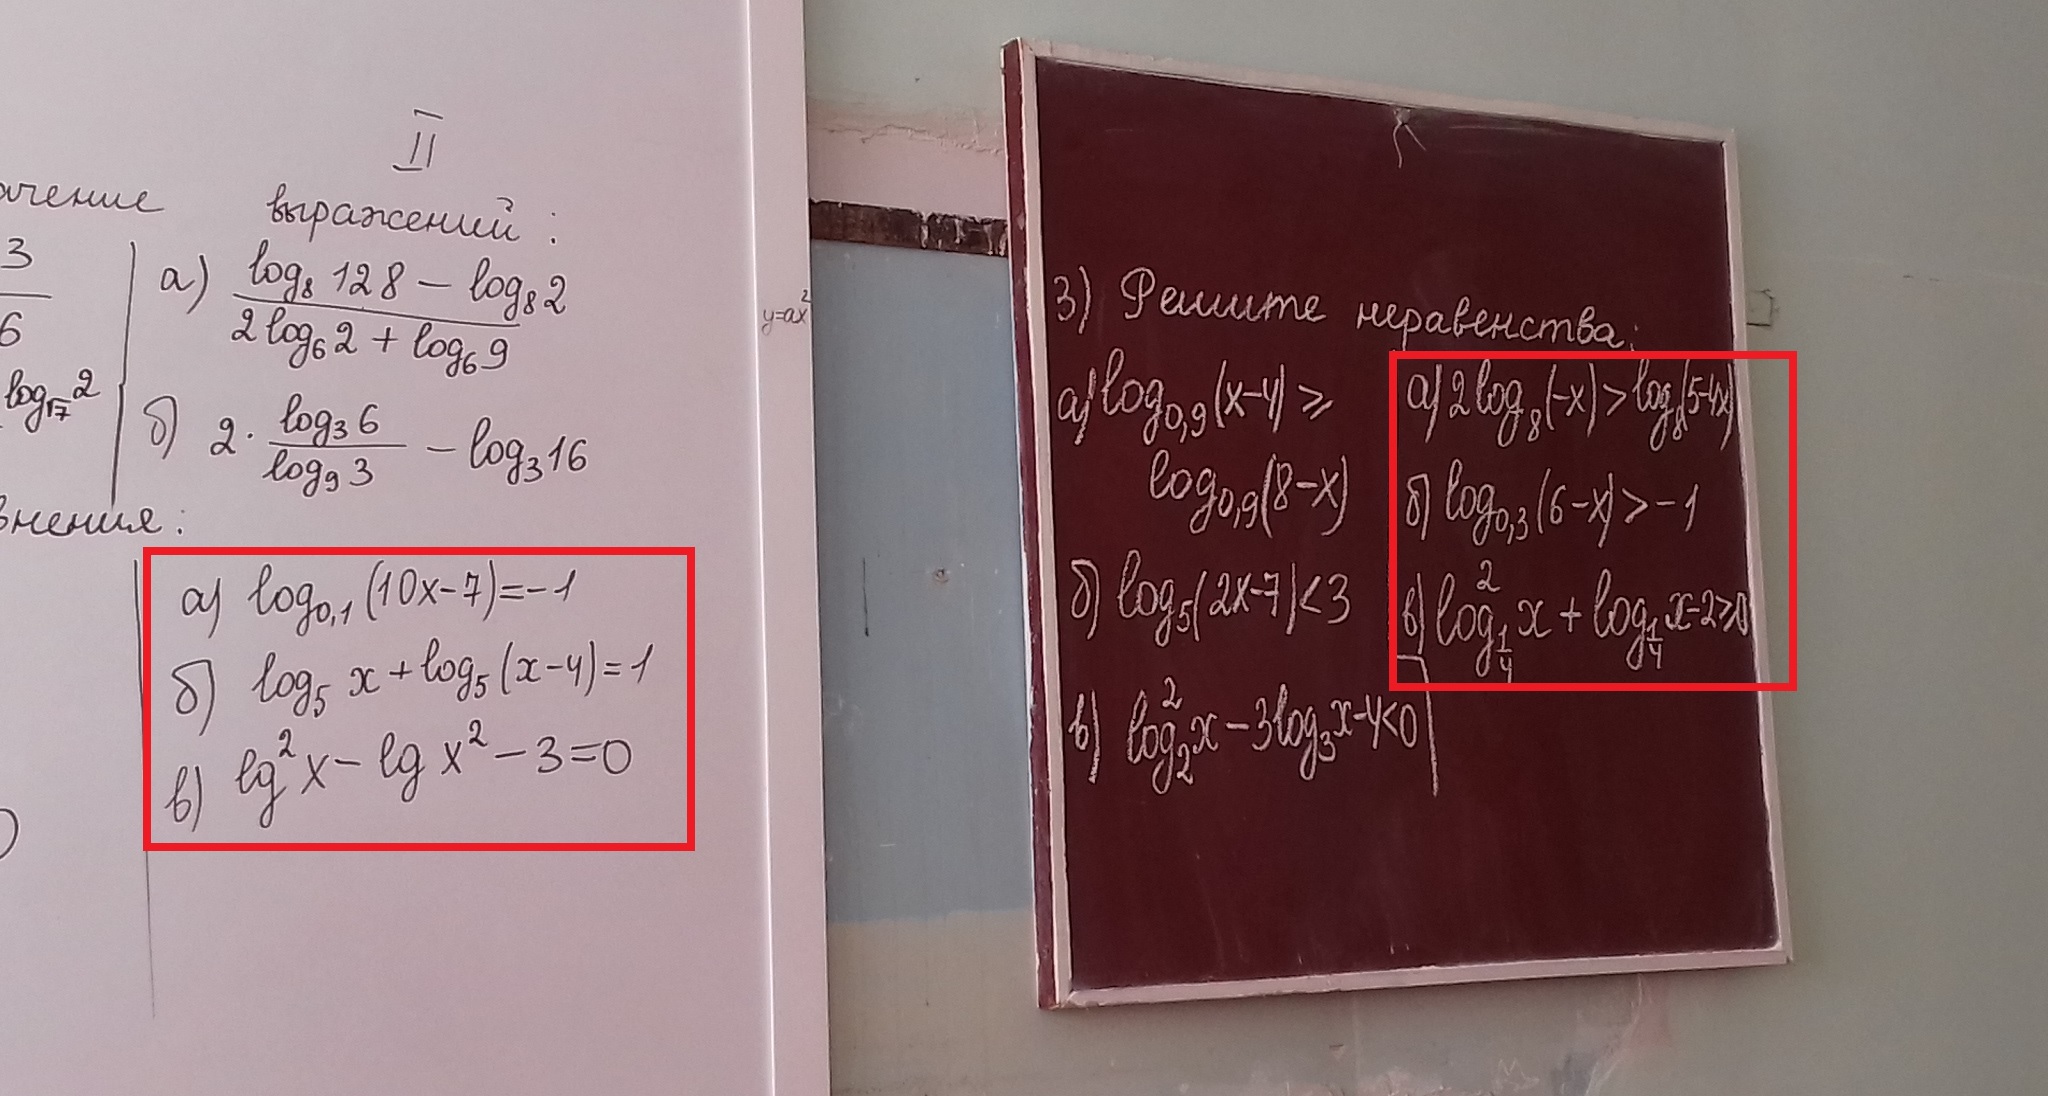 II
выражений:
3
6
а) (log₈ 128 − log₈ 2)/(2 log₆ 2 + log₆ 9)
log√7 2
б) 2 · (log₃ 6)/(log₉ 3) − log₃ 16
а) log₀,₁ (10x−7)=−1
б) log₅ x + log₅ (x−4)=1
в) lg² x − lg x² − 3=0
y=ax²
3) Решите неравенства:
а) log₀,₉ (x−4) ⩾
log₀,₉ (8−x)
б) log₅ (2x−7)<3
в) log₂² x − 3log₃ x−4<0
а) 2log₈ (−x) > log₈ (5−4x)
б) log₀,₃ (6−x) > −1
в) log²_{1/4} x + log_{1/4} x−2⩾0